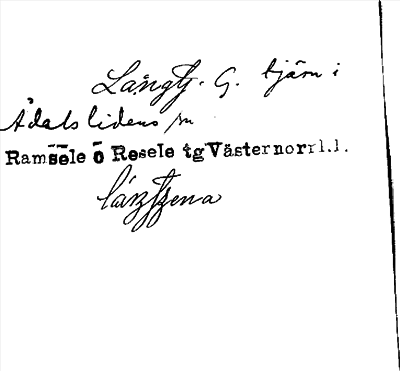 Långtj. G. tjärn i
Ådalslidens sn
Ramsele o Resele tg Västernorrl.l.